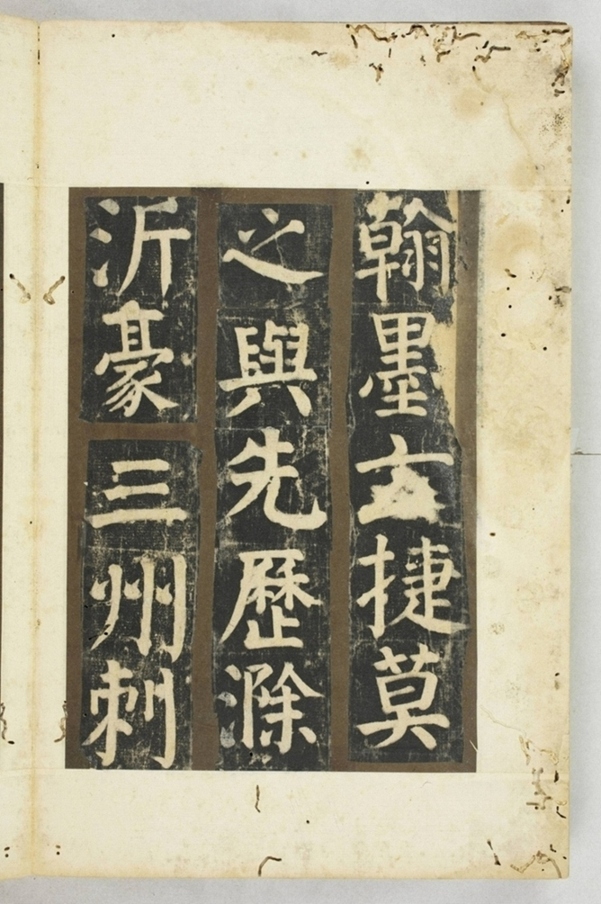 翰墨捷莫
之與先歷滁
沂豪三州刺